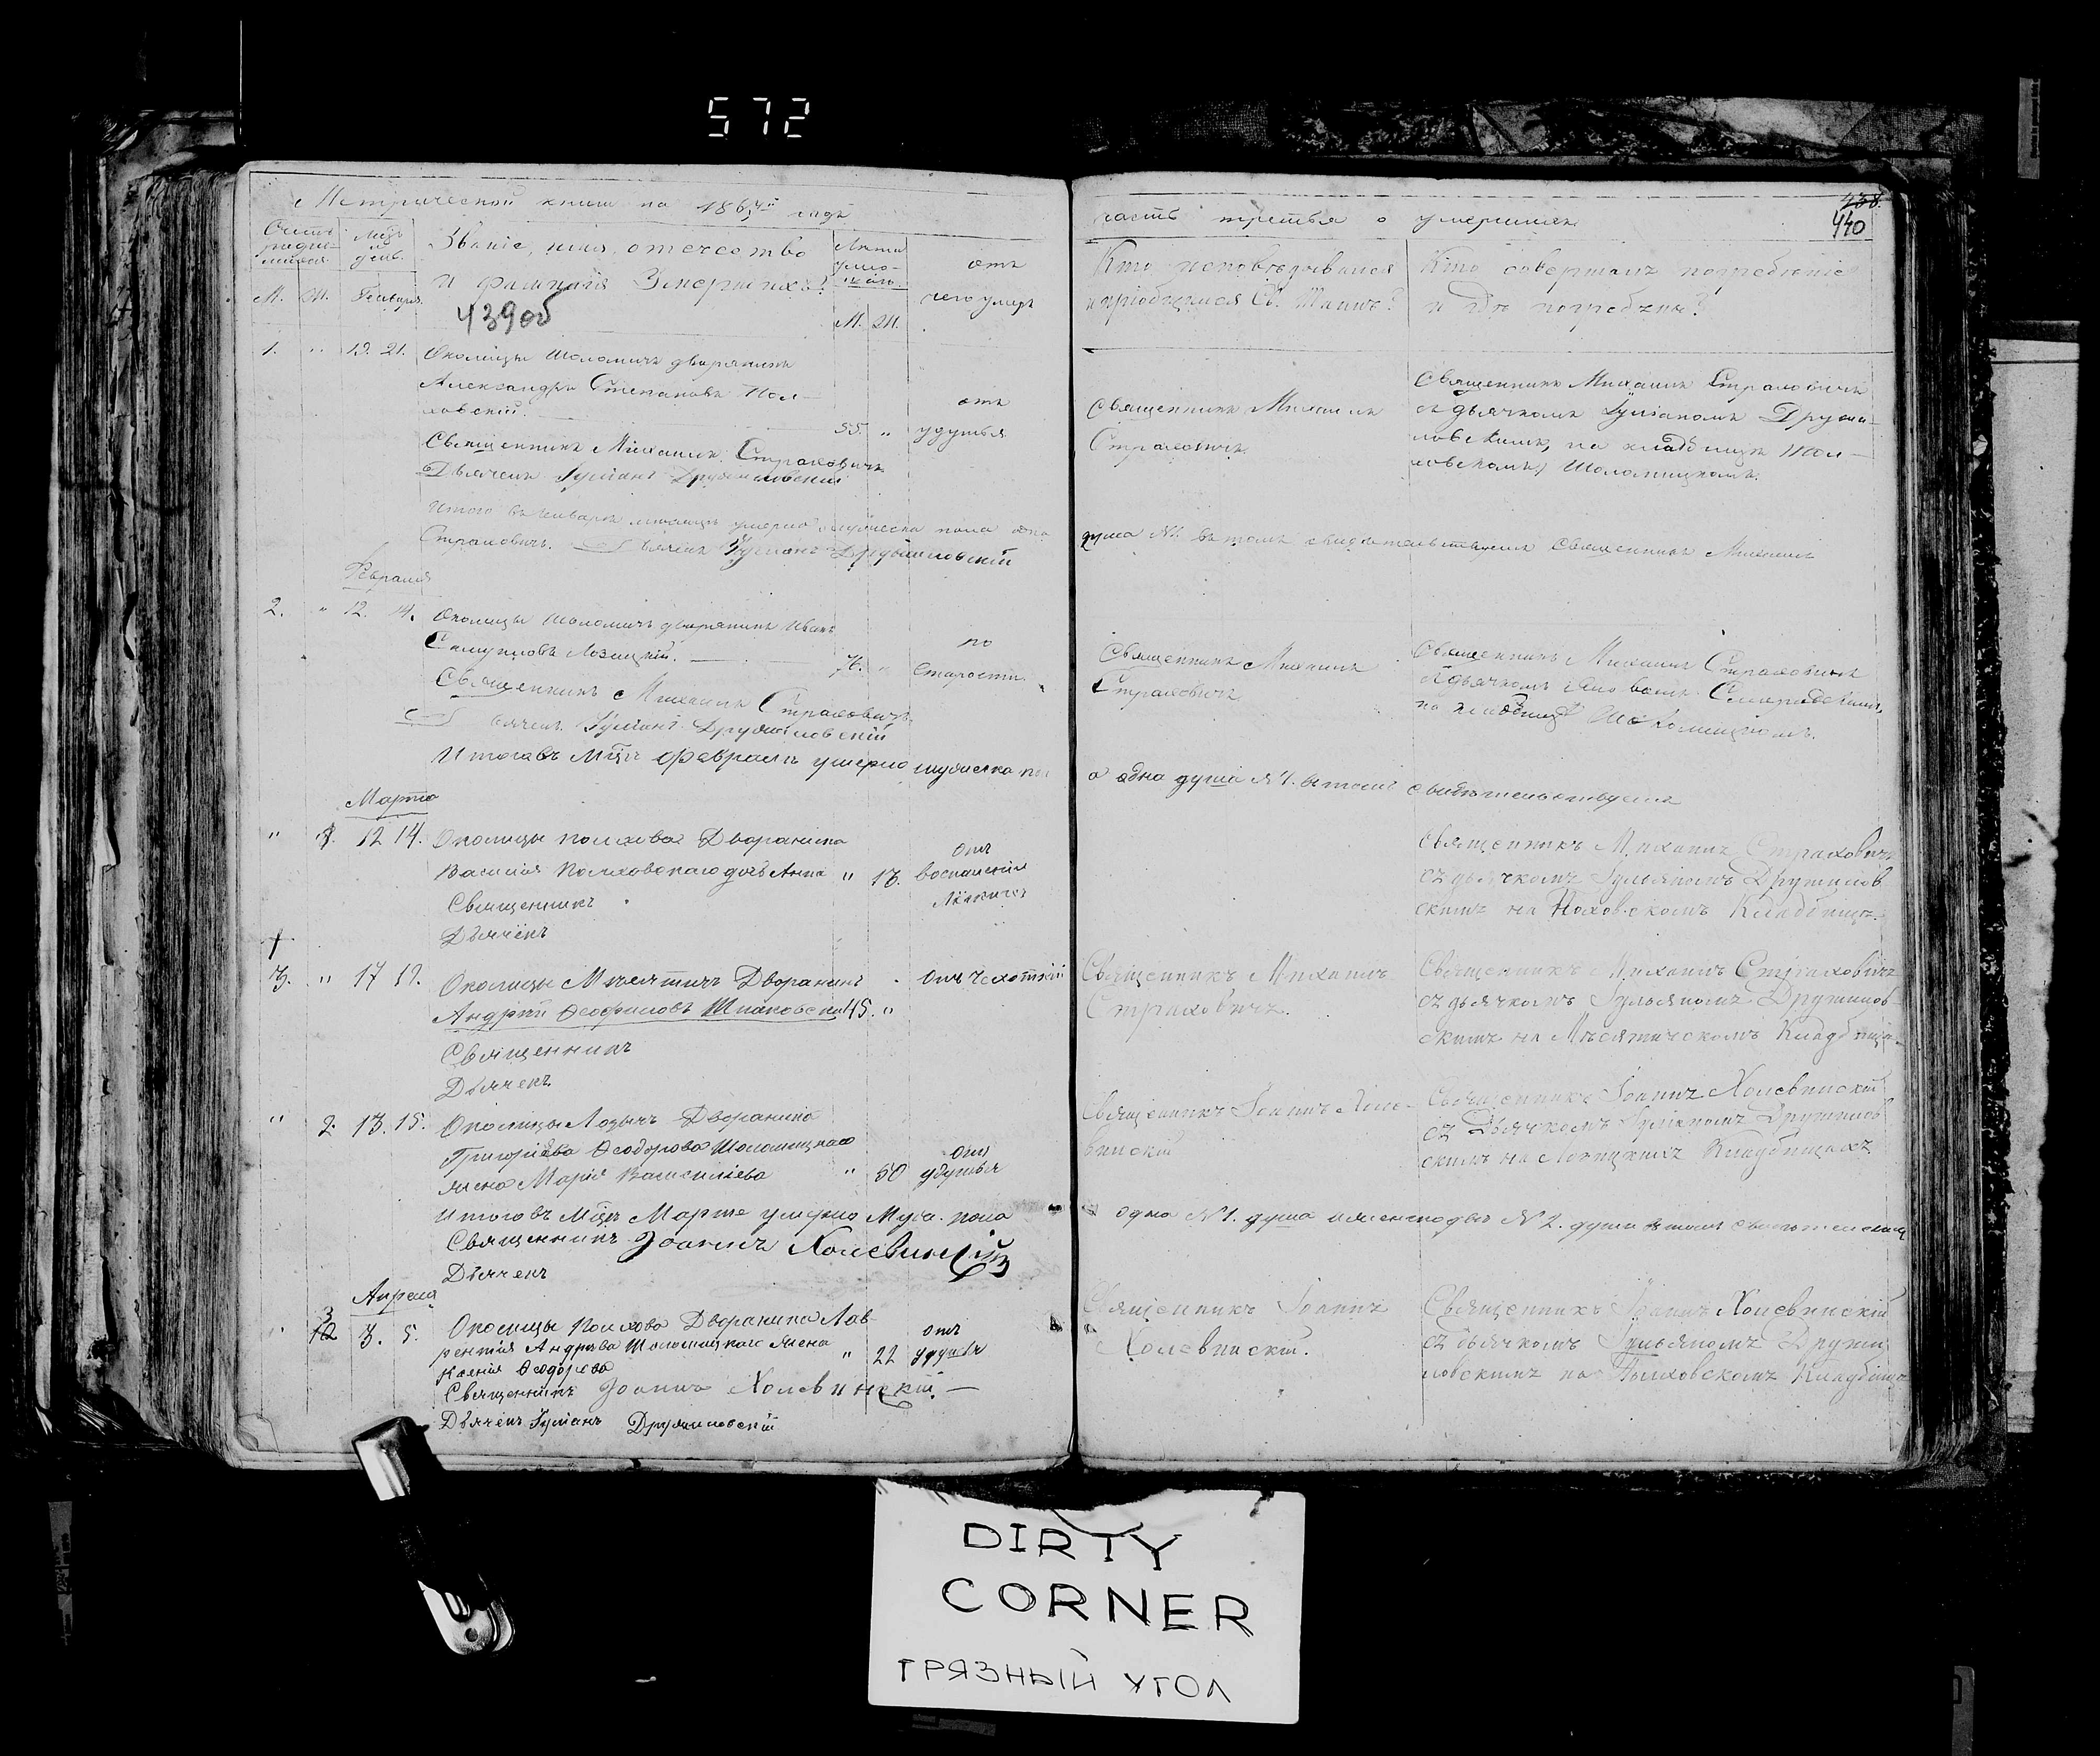 572
Метрической книги на 1864й годъ
Званіе, имя, отечество
и фамилія Умершихъ?
439об
Лѣта
М. Ж. Генваря М. Ж.
отъ
чего умеръ
1. " 19. 21. Околицы Шоломичъ дворянинъ
Александръ Степановъ
55. " отъ удушья
Священникъ Михаилъ Страховичъ
Дьячекъ Іуліанъ Дружиловскій
Итого въ Январѣ мѣсяцѣ умерло мужеска пола одна
Страховичъ. Дьячекъ Іуліанъ Дружиловскій
Февраля
2. " 12. 14. Околицы Шоломичъ дворянинъ Иванъ
Самуиловъ Лозицкій. 76. " по старости
Священникъ Михаилъ Страховичъ
Дьячекъ Іуліанъ Дружиловскій
Итого въ Мцѣ Февралѣ умерло мужеска пол
Марта
" 12 14. Околицы Полхова Дворянина
Василія Полховскаго дочь Анна " 13. отъ воспаленія
Священникъ
Дьячекъ
3. " 17 19. Околицы Дворянинъ отъ чахотки
Андрей Ѳеофиловъ 45. "
Священникъ
Дьячекъ
" 2. 13. 15. Околицы Дворянина
Григорія Ѳеодорова Шоломицкаго
жена Марія Васильева " 50 отъ удушья
Итого въ Мцѣ Мартѣ умерло Муж. пола
Священникъ Іоаннъ Холевинскій
Дьячекъ
Апреля
" 3 3. 5. Околицы Полхова Дворянина Лав-
рентія Андреева Шоломицкаго жена " 22 отъ удушья
Ксенія Ѳеодорова
Священникъ Іоаннъ Холевинскій
Дьячекъ Іуліанъ Дружиловскій
438
440
часть третья о умершихъ
Кто исповѣдывалъ
и пріобщалъ Св. Таинъ?
Кто совершалъ погребеніе
и гдѣ погребены?
Священникъ Михаилъ
Страховичъ
Священникъ Михаилъ Страховичъ
съ дьячкомъ Іуліаномъ Дружи-
ловскимъ, на кладбищѣ
Шоломицкомъ.
душа №1. въ томъ свидѣтельствуемъ Священникъ Михаилъ
Священникъ Михаилъ
Страховичъ
Священникъ Михаилъ Страховичъ
съ дьячкомъ
на кладбищѣ Шоломицкомъ.
а одна душа №1. въ томъ свидѣтельствуемъ
Священникъ Михаилъ Страховичъ
съ дьячкомъ Іульяномъ Дружилов
скимъ на Полховскомъ Кладбищѣ.
Священникъ Михаилъ
Страховичъ.
Священникъ Михаилъ Страховичъ
съ дьячкомъ Іульяномъ Дружилов-
скимъ на Кладбищѣ
Священникъ Іоаннъ Холе-
винскій
Священникъ Іоаннъ Холевинскій
съ Дьячкомъ Іуліяномъ Дружилов
скимъ на Кладбищахъ
одна №1. душа №2. души въ томъ
Священникъ Іоаннъ
Холевинскій.
Священникъ Іоаннъ Холевинскій
съ дьячкомъ Іульяномъ Дружи
ловскимъ на Полховскомъ Кладбищѣ
DIRTY
CORNER
ГРЯЗНЫЙ УГОЛ